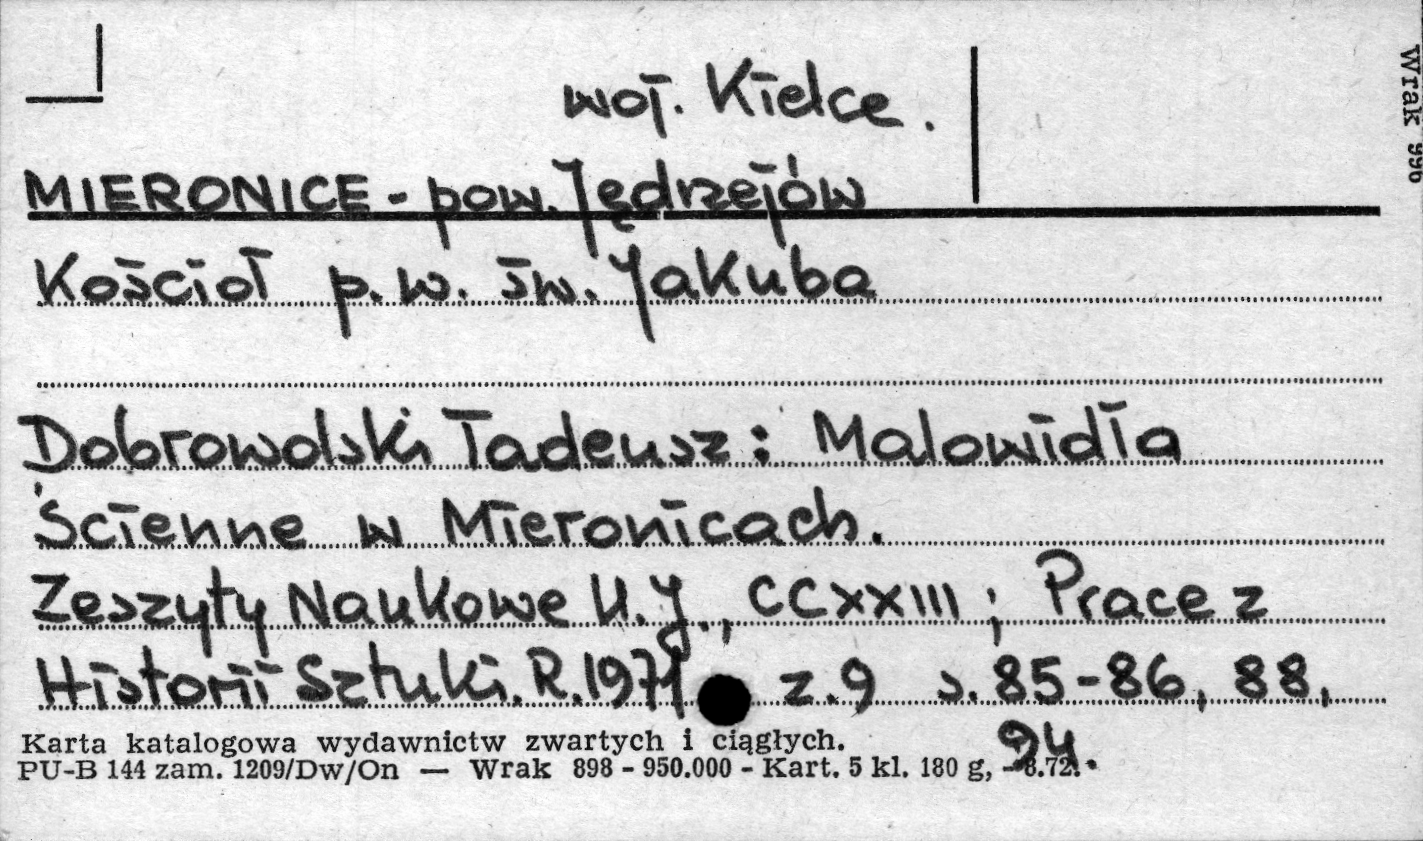 woj. Kielce.
MIERONICE - pow. Jędrzejów
Kościoł p.w. św. Jakuba
Dobrowolski Tadeusz: Malowidła
Ścienne w Mieronicach.
Zeszyty Naukowe U.J., CCXXIII; Prace z
Historii Sztuki. R.1971 z.9 s. 85-86, 88,
94.
Karta katalogowa wydawnictw zwartych i ciągłych.
PU-B 144 zam. 1209/Dw/On — Wrak 898 - 950.000 - Kart. 5 kl. 180 g, - 8.72.
Wrak 996